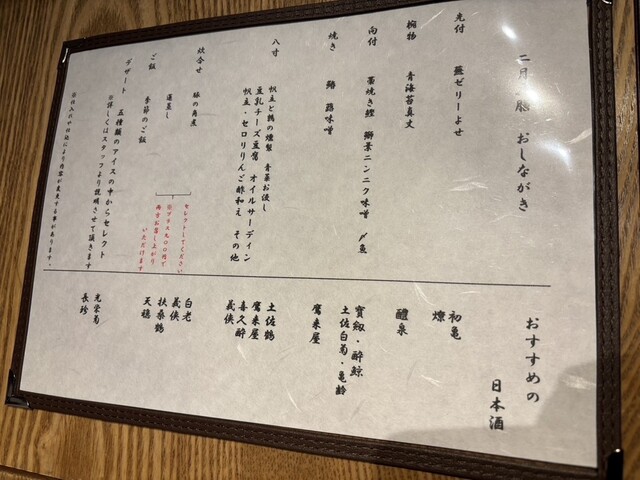 二月 おしながき
先付 蕪ゼリーよせ
椀物 青海苔真丈
向付 藁焼き鰹 葉ニンニク味噌 〆魚
焼き 鰆 蕗味噌
八寸 帆立と鶏の燻製 青菜お浸し
豆乳チーズ豆腐 オイルサーディン
帆立・セロリりんご酢和え その他
炊合せ 豚の角煮
ご飯 蓮蒸し
季節のご飯
セレクトしてください
※プラス九〇〇円で
両方お召し上がり
いただけます
デザート 五種類のアイスの中からセレクト
※詳しくはスタッフより説明させて頂きます
※仕入れや仕込により内容が変更する事があります。
おすすめの
日本酒
初亀
燎
醴泉
寳剱・酔鯨
土佐白菊・亀齢
鷹来屋
土佐鶴
鷹来屋
喜久酔
義侠
白老
義侠
扶桑鶴
天穏
光栄菊
長珍